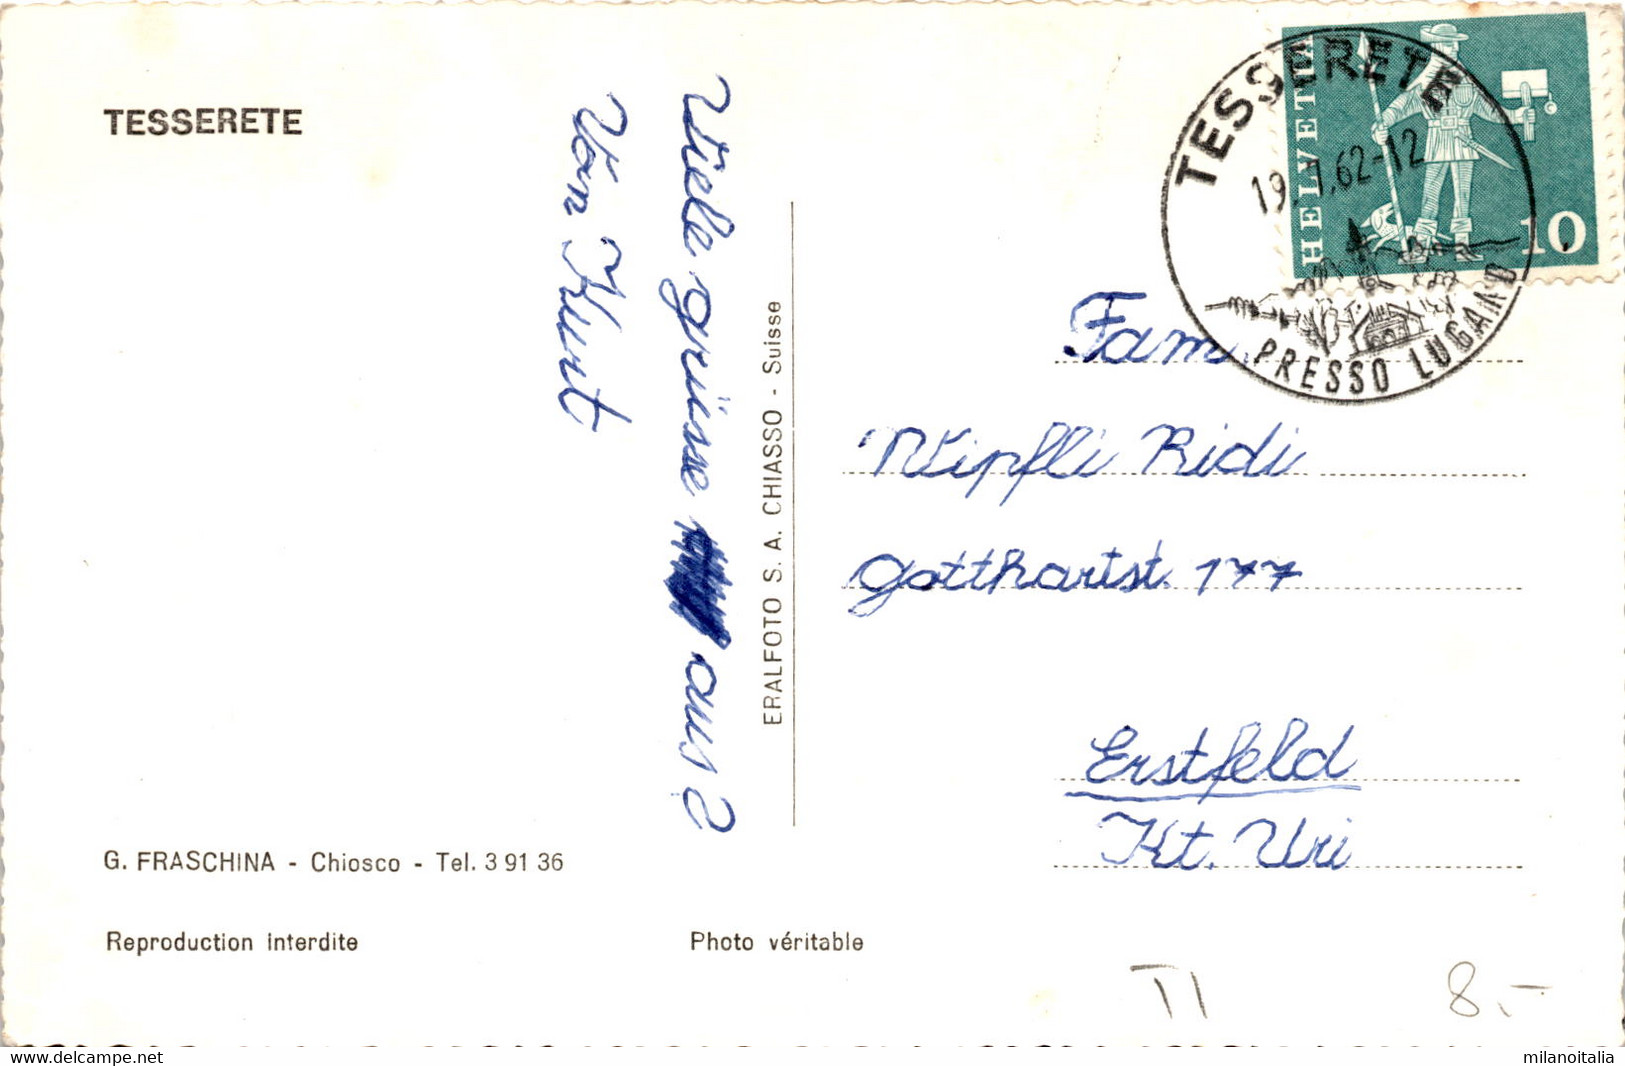 TESSERETE
Viele grüsse aus
Von Kurt
ERALFOTO S. A. CHIASSO - Suisse
HELVETIA
10
TESSERETE
19. 62-12
PRESSO LUGANO
Fam.
Wipfli Ridi
Gotthartst. 177
Erstfeld
Kt. Uri
G. FRASCHINA - Chiosco - Tel. 3 91 36
Reproduction interdite
Photo véritable
TI
8.-
milanoitalia